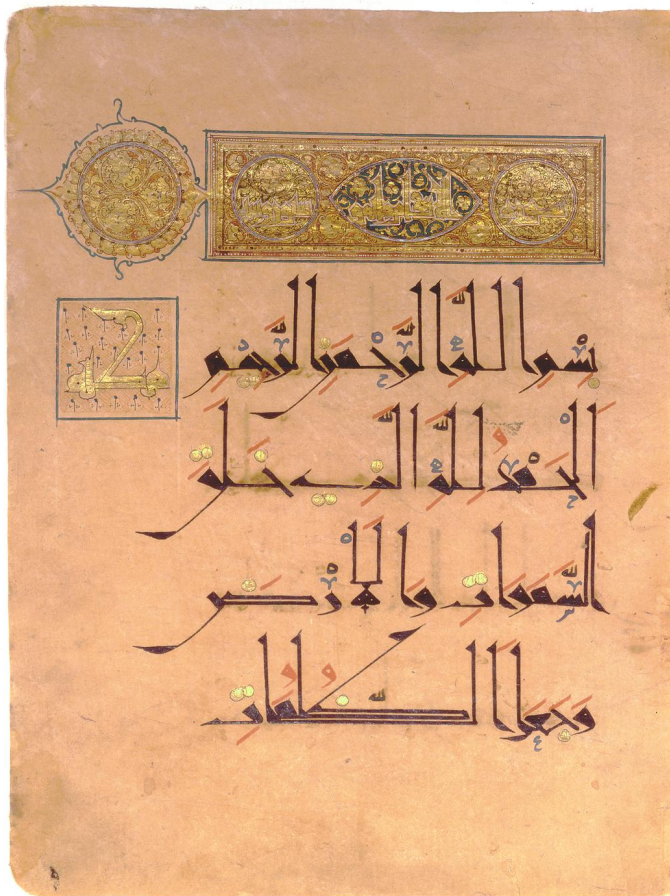 بِسْمِ اللَّهِ الرَّحْمَنِ الرَّحِيمِ
الْحَمْدُ لِلَّهِ الَّذِي خَلَقَ
السَّمَوَاتِ وَالْأَرْضَ
وَجَعَلَ الظُّلُمَاتِ